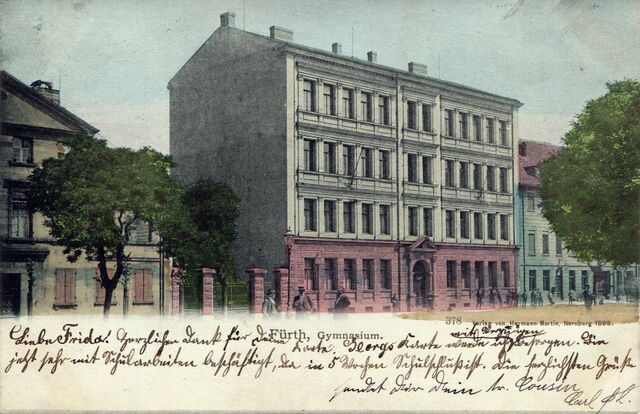 Fürth, Gymnasium.
378 Verlag von Hermann Martin, Nürnberg 1898.
Liebe Frida! Herzlichen Dank für Deine Karte, Georgs Karte werde ich mit Vergnügen besorgen. Bin
jetzt sehr mit Schularbeiten beschäftigt, da in 5 Wochen Schulschluß ist. Die herzlichsten Grüße
sendet Dir Dein tr. Cousin
Carl